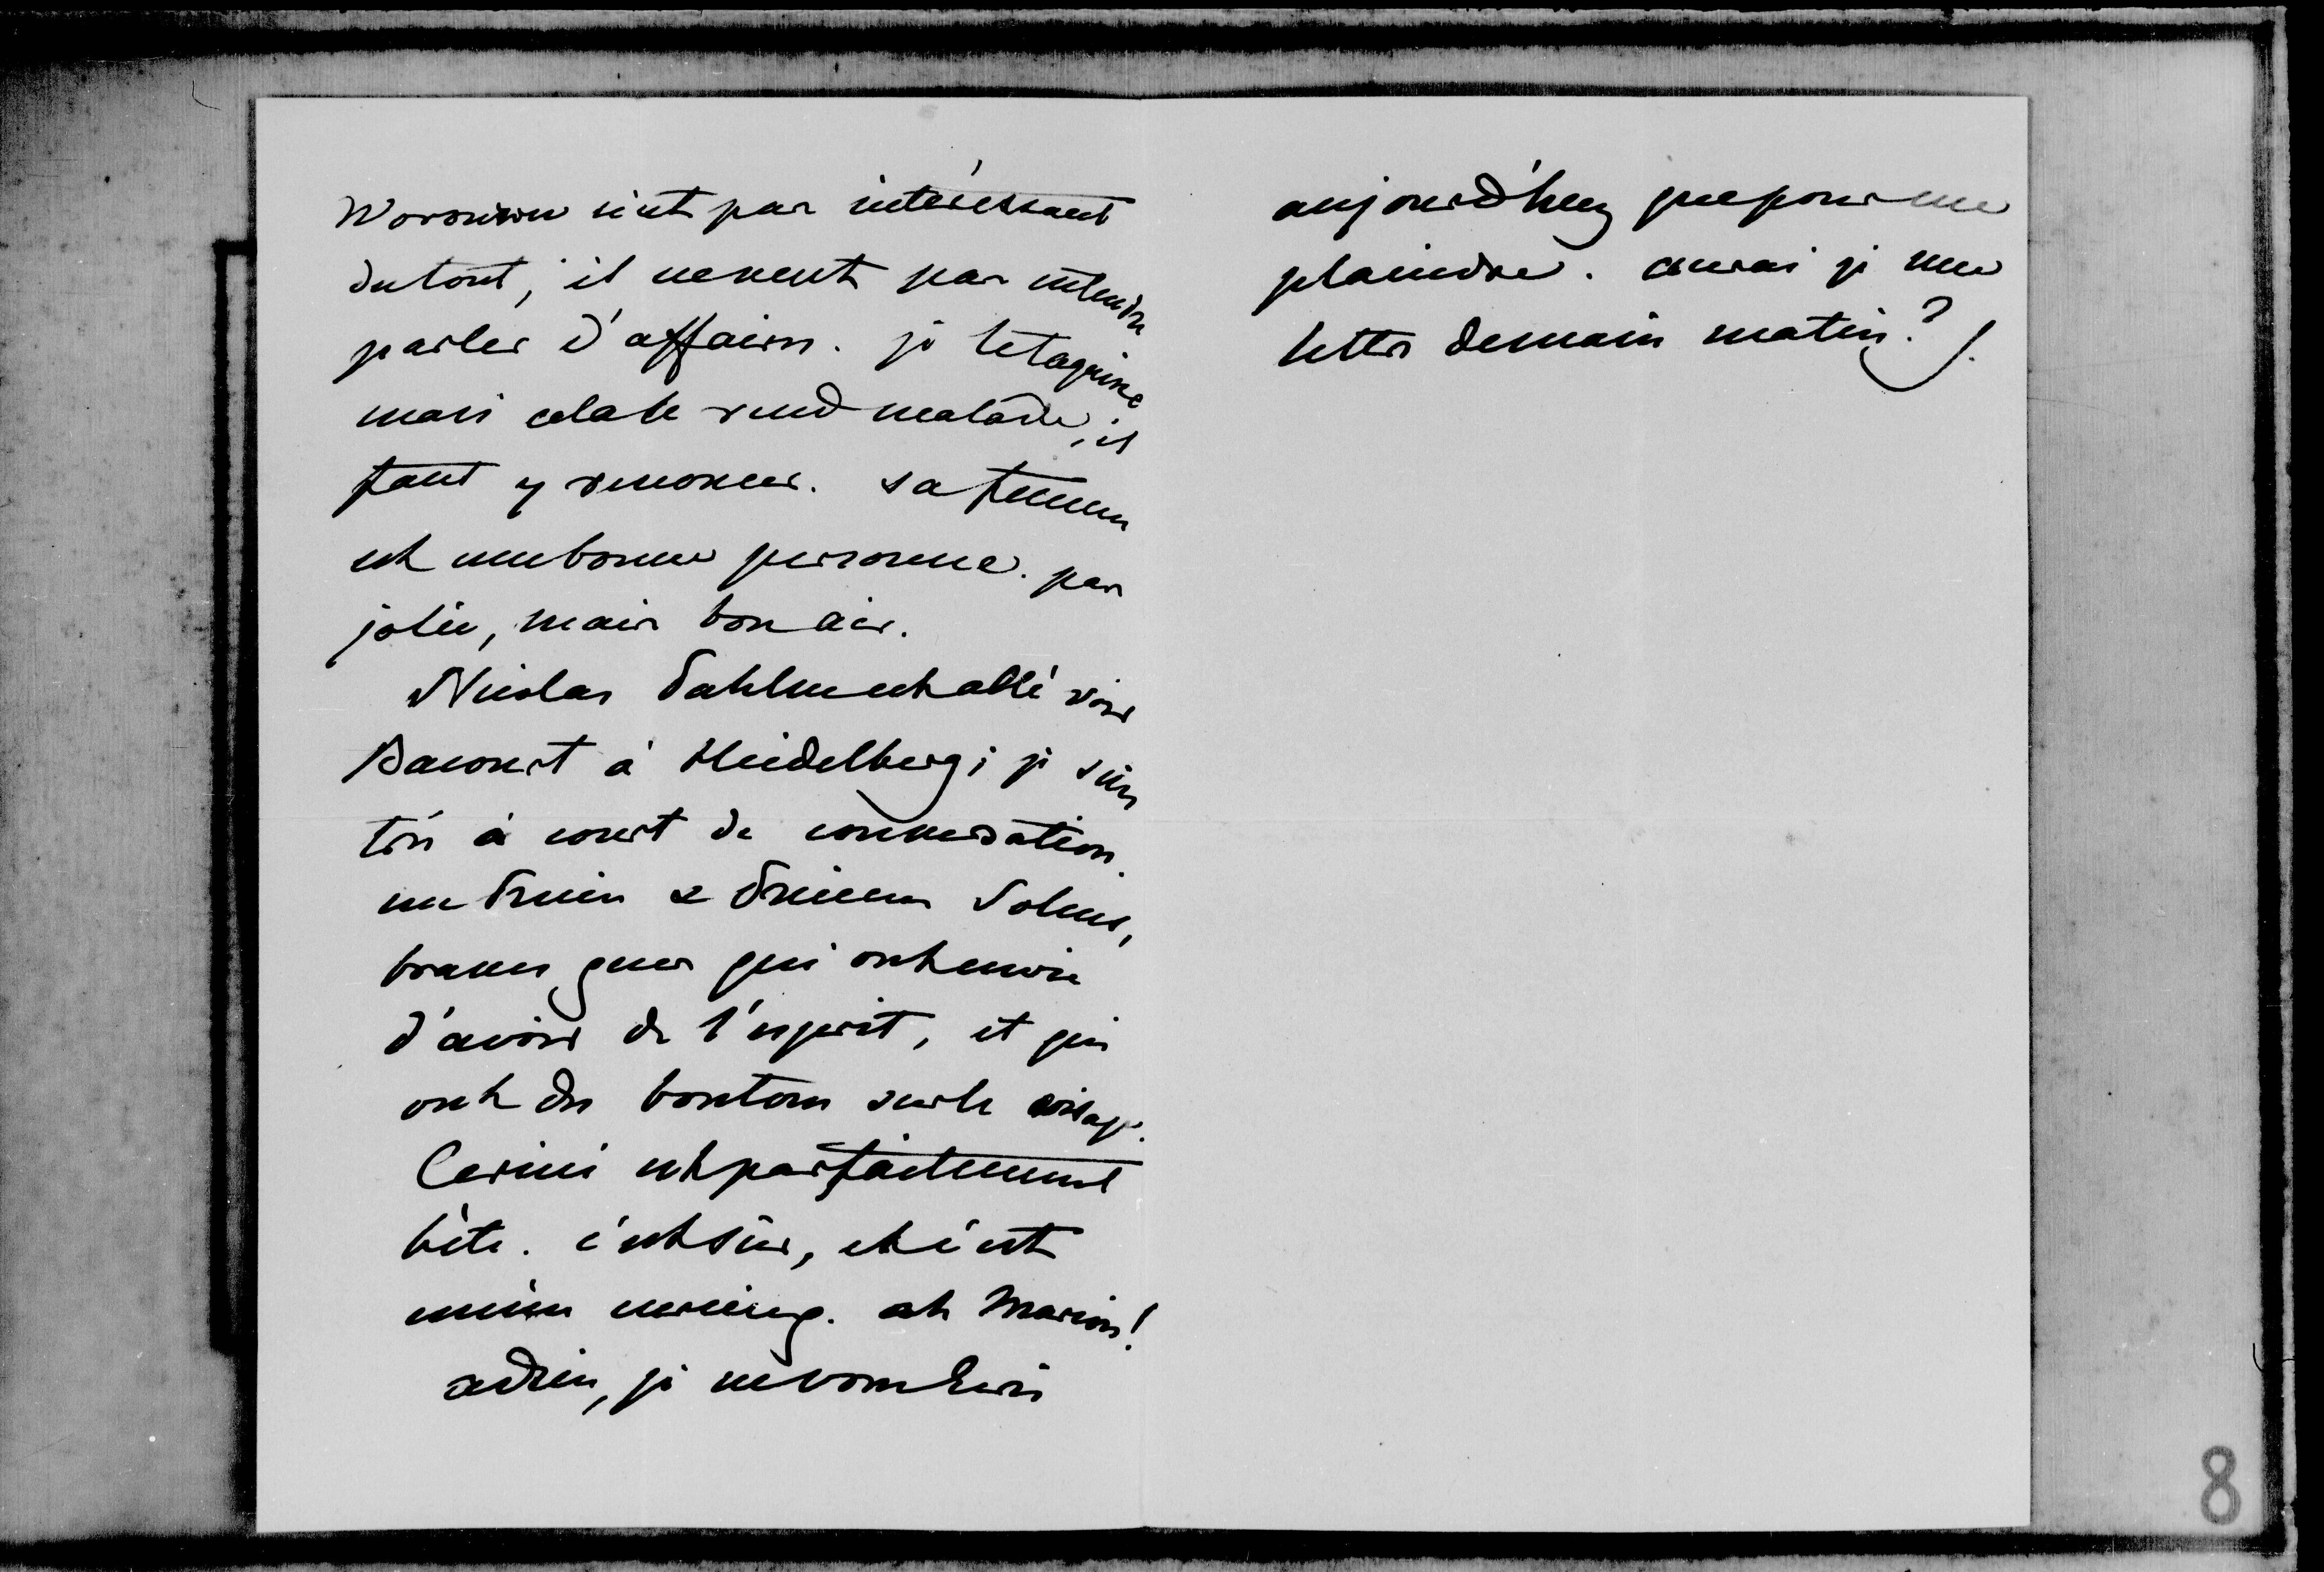 Woronzow n'est pas intéressant
du tout, il ne veut pas entendre
parler d'affaires. je le taquine
mais cela le rend malade, il
faut y renoncer. sa femme
est une bonne personne. pas
jolie, mais bon air.
Nicolas Pahlen est allé voir
Bacourt à Heidelberg; je suis
très à court de conversation.
un Prince & Princesse Solms,
braves gens qui ont envie
d'avoir de l'esprit, et qui
ont des boutons sur le visage.
Cerini est parfaitement
bête. c'est sûr, et c'est
même ennuyeux. ah Marion!
adieu, je ne vous écris
aujourd'huy que pour me
plaindre. aurai je une
lettre demain matin?
8